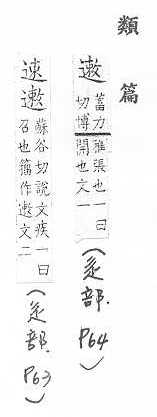 類篇
遫 蓄力切博雅張也一曰開也文一 (辵部. P64)
速遫 蘇谷切說文疾一曰召也籀作遫文二 (辵部. P63)